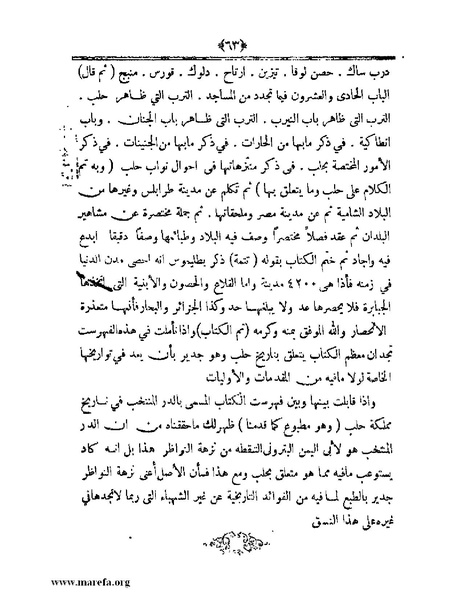 ﴿٦٣﴾
درب ساك . حصن لوفا . تيزين . ارتاح . دلوك . قورس . منبج ( ثم قال )
الباب الحادى والعشرون فيما تجدد من المساجد . الترب التي ظاهر حلب .
الترب التى ظاهر باب النيرب . الترب التى ظاهر باب الجنان . وباب
انطاكية . فى ذكر مابها من الحارات . فى ذكر مابها من الجنينات . فى ذكر
الأمور المختصة بحلب . فى ذكر منتزهاتها فى احوال نواب حلب ( وبه تم
الكلام على حلب وما يتعلق بها ) ثم تكلم عن مدينة طرابلس وغيرها من
البلاد الشامية ثم عن مدينة مصر وملحقاتها . ثم جملة مختصرة عن مشاهير
البلدان ثم عقد فصلاً مختصراً وصف فيه البلاد وطبائعها وصفاً دقيقا ابدع
فيه واجاد ثم ختم الكتاب بقوله ( تتمة ) ذكر بطليدوس انه احصى مدن الدنيا
فى زمنه فأذا هى ٤٢٠٠ مدينة واما القلاع والحصون والأبنية التى اتخذتها
الجبابرة فلا يحصرها عد ولا يبلغها حد وكذا الجزائر والبحار فأنها متعذرة
الانحصار والله الموفق بمنه وكرمه ( تم الكتاب ) واذا تأملت في هذه الفهرست
تجد ان معظم الكتاب يتعلق بتاريخ حلب وهو جدير بأن يعد فى تواريخها
الخاصة لولا مافيه من المقدمات والأوليات
واذا قابلت بينها وبين فهرست الكتاب المسمى بالدر المنتخب فى تاريخ
مملكة حلب ( وهو مطبوع كما قدمنا ) ظهر لك ماحققناه من ان الدر
المنتخب هو لأبى اليمن البترونى التقطه من نزهة النواظر هذا بل انه كاد
يستوعب مافيه مما هو متعلق بحلب ومع هذا فسأن الأصل أعنى نزهة النواظر
جدير بالطبع لما فيه من الفوائد التاريخية عن غير الشهباء التى ربما لاتجدها فى
غيره على هذا النسق
www.marefa.org